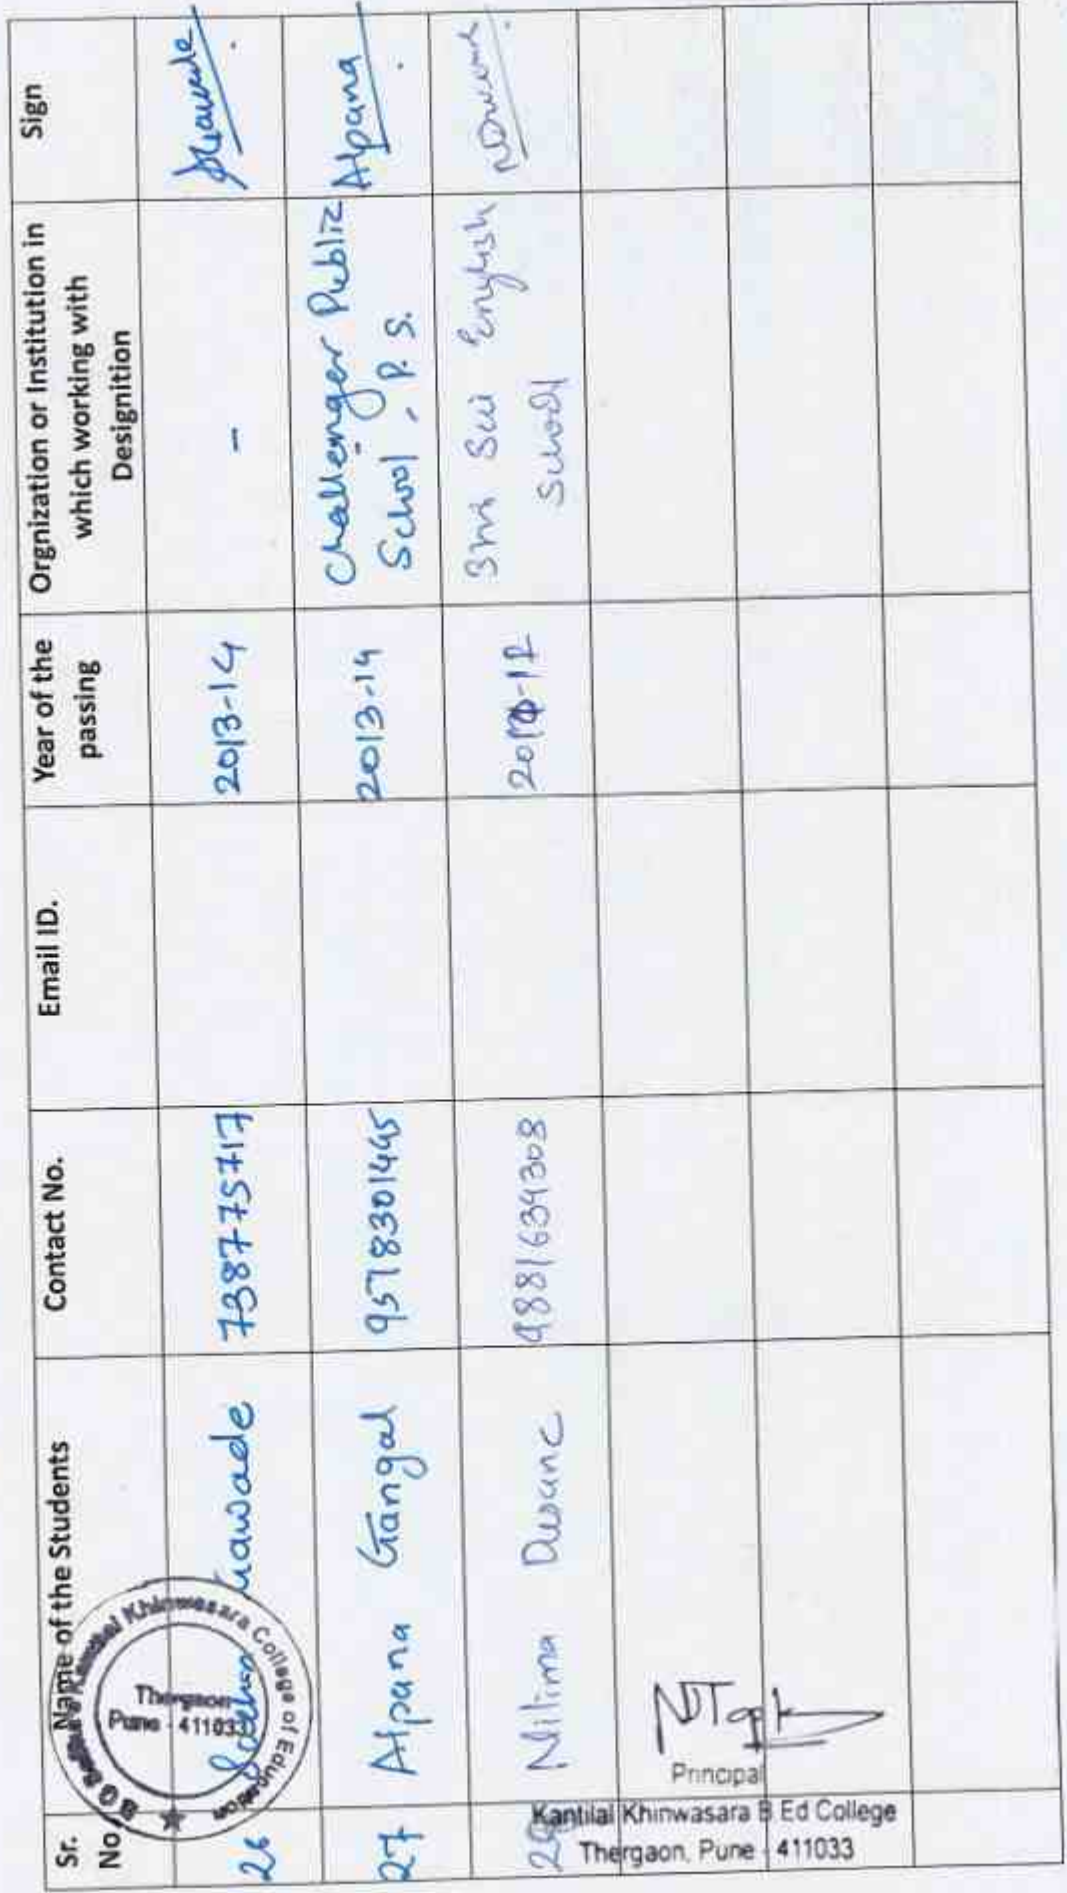 Sr.
No.
Name of the Students
Contact No.
Email ID.
Year of the
passing
Orgnization or Institution in
which working with
Designition
Sign
26
7387775717
2013-14
-
27
Alpana Gangal
9578301445
2013-14
Challenger Public
School, P. S.
Alpana
Nilima
9881634308
English
School
Khinwasara College of Education
Thergaon
Pune - 411033
Principal
Kantilal Khinwasara B Ed College
Thergaon, Pune - 411033